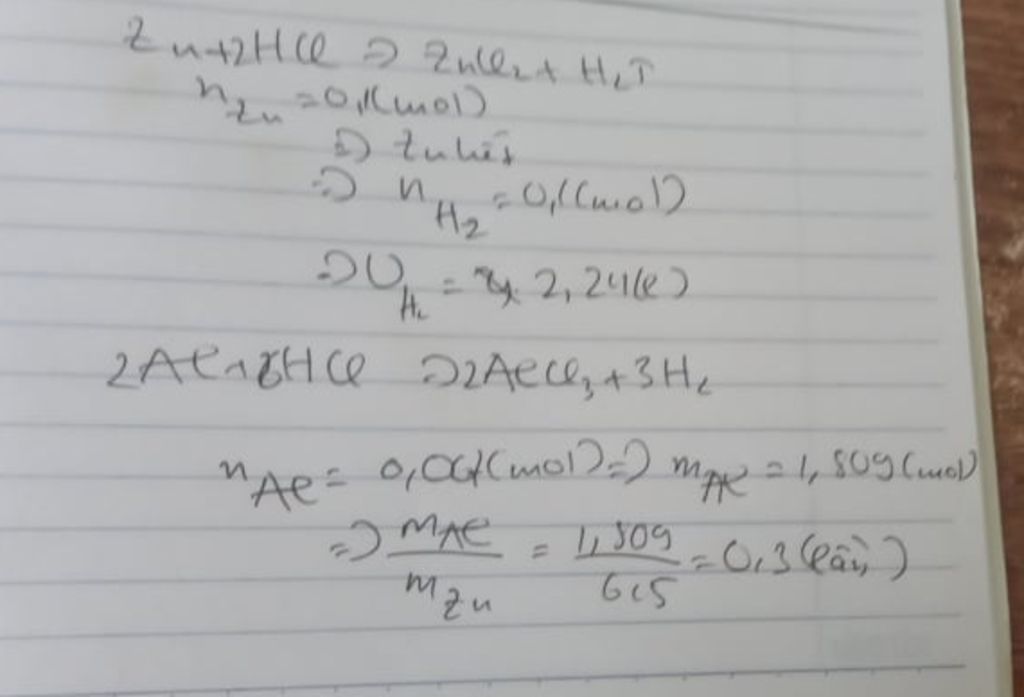 Zn+2HCl ⇒ ZnCl₂ + H₂↑
n_Zn = 0,1(mol)
⇒ Zn hết
⇒ n_H₂ = 0,1(mol)
⇒ V_H₂ = 2,24(l)
2Al+6HCl ⇒ 2AlCl₃ + 3H₂
n_Al = 0,067(mol) ⇒ m_Al = 1,809(mol)
⇒ m_Al / m_Zn = 1,809 / 6,5 = 0,3(lần)